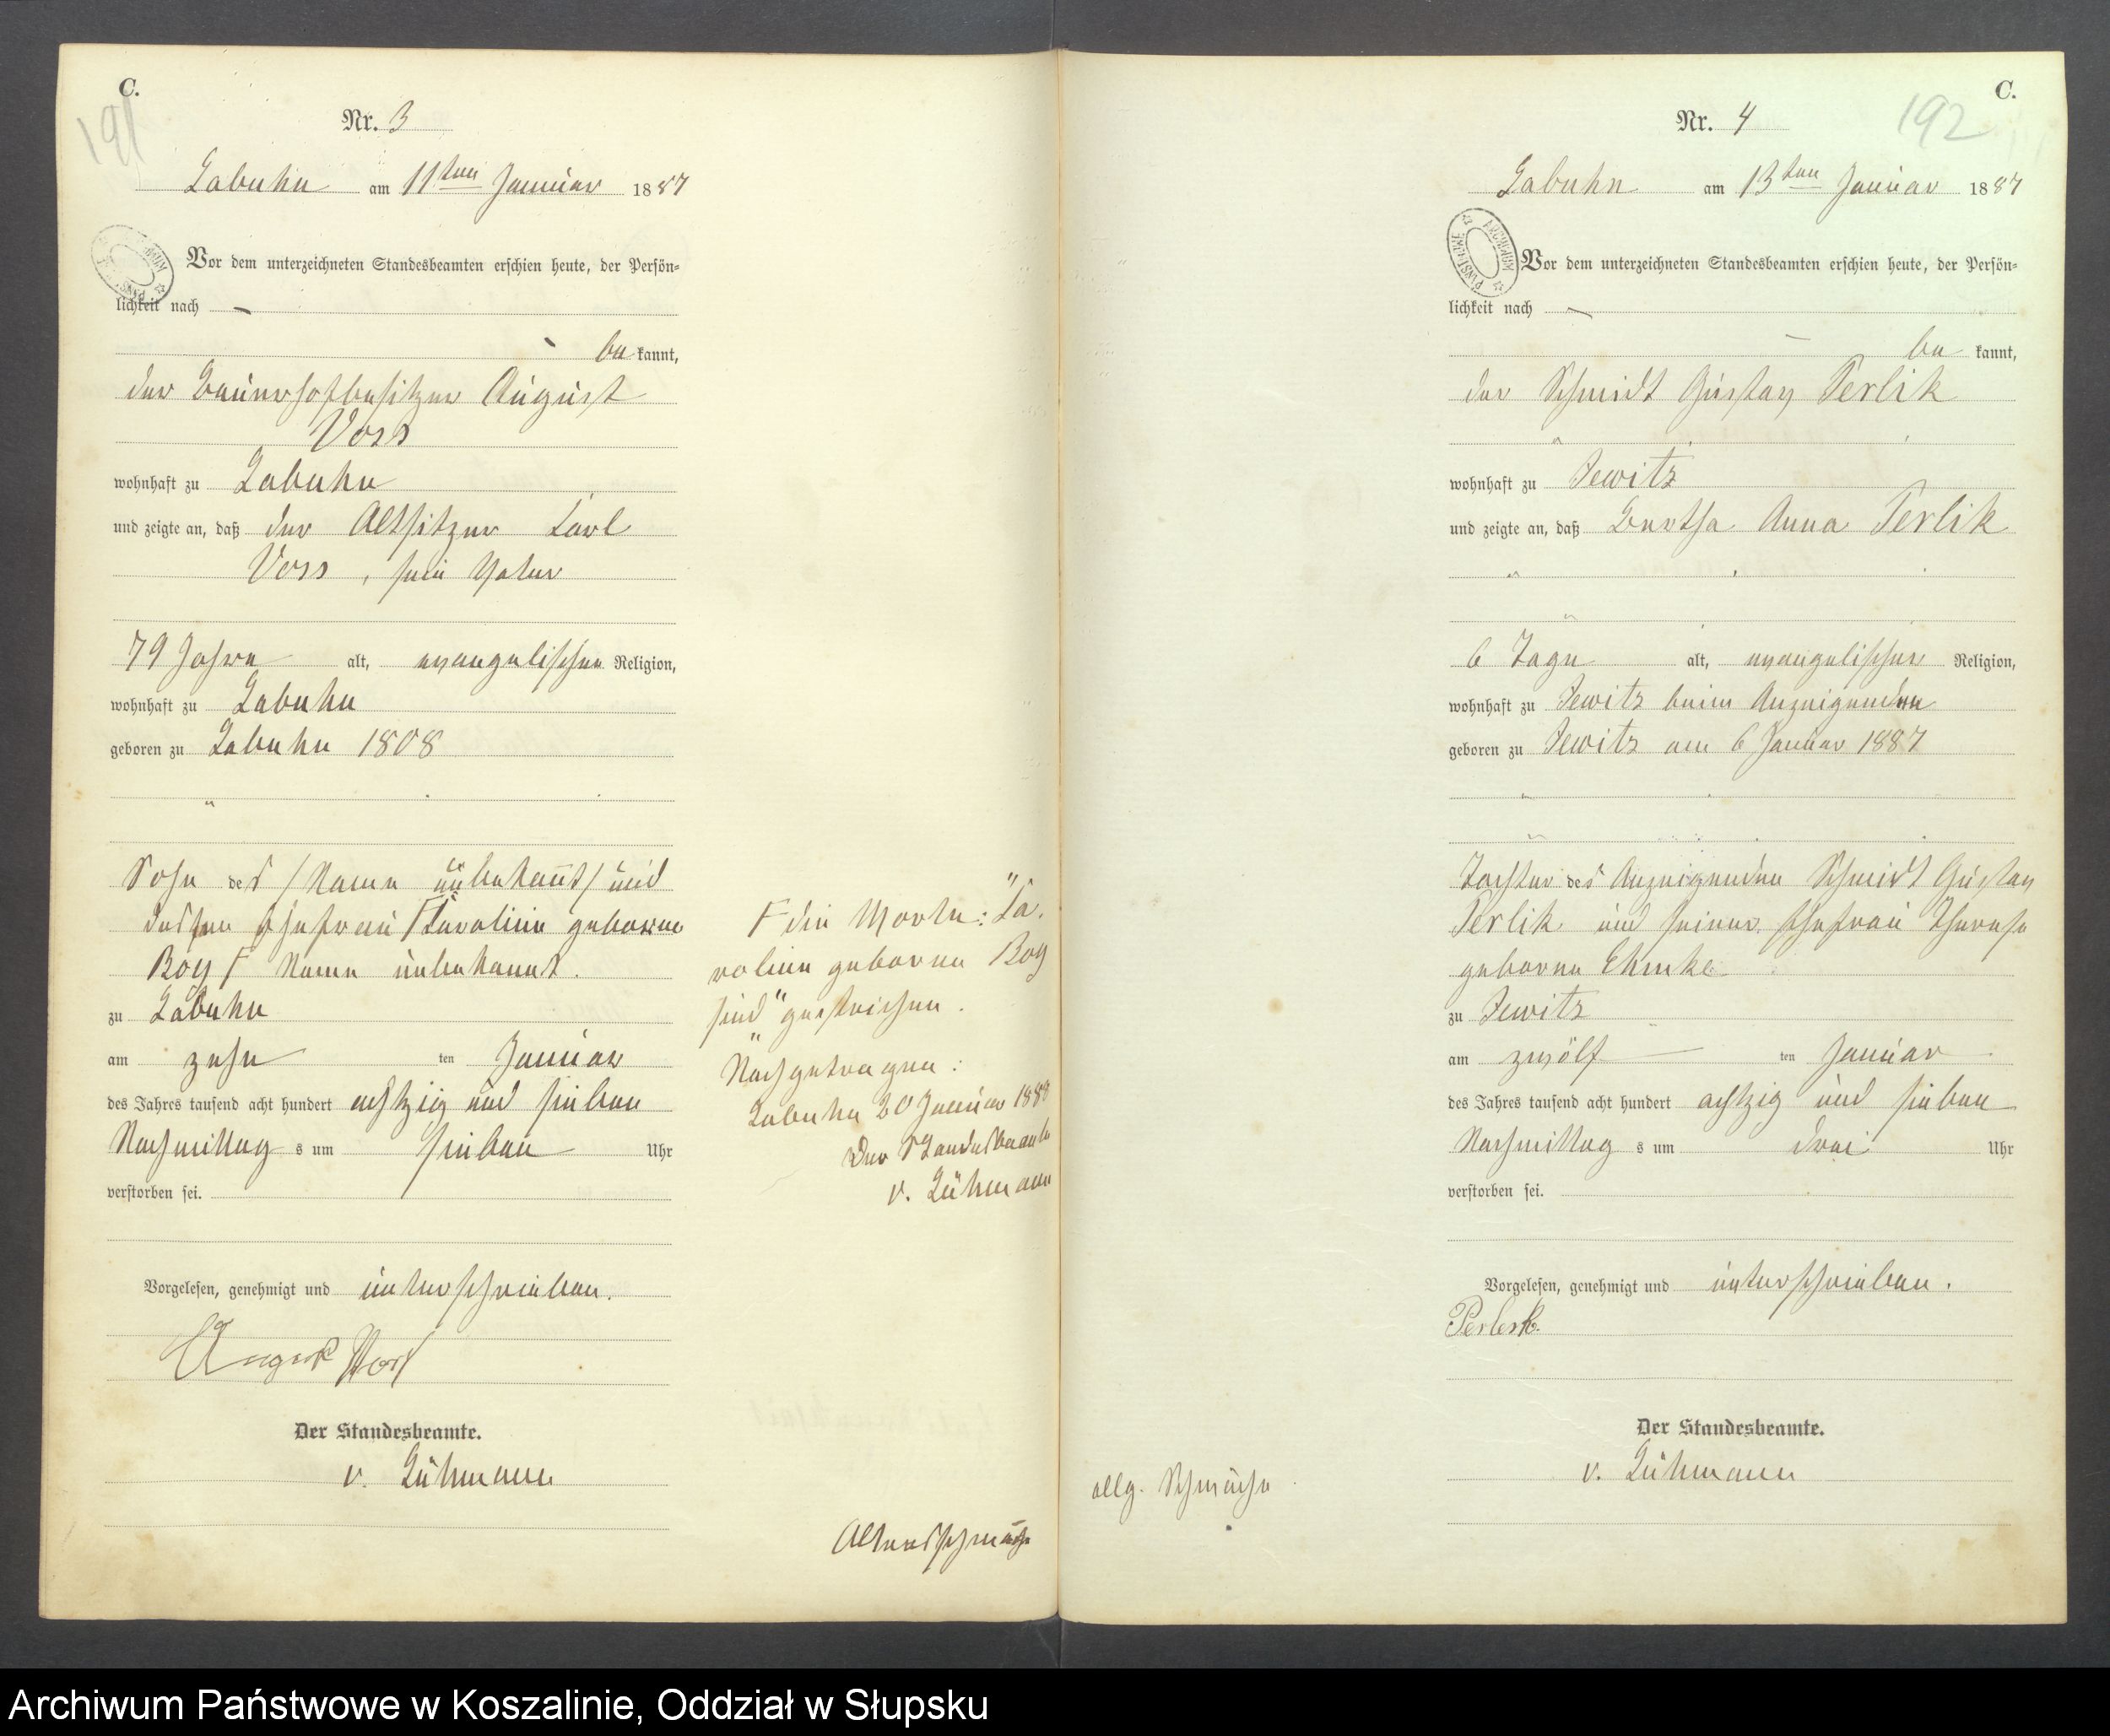 C.
191
Nr. 3
Labuhn am 11ten Januar 1887
Vor dem unterzeichneten Standesbeamten erschien heute, der Persön=
lichkeit nach —
be kannt,
der Bauerhofbesitzer August
Voss
wohnhaft zu Labuhn
und zeigte an, daß der Altsitzer Carl
Voss, sein Vater
79 Jahre alt, evangelischer Religion,
wohnhaft zu Labuhn
geboren zu Labuhn 1808
Sohn des /Name unbekannt/ und
dessen Ehefrau Caroline geborne
Boy Name unbekannt.
zu Labuhn
am zehn ten Januar
des Jahres tausend acht hundert achtzig und sieben
Nachmittag s um sieben Uhr
verstorben sei.
Vorgelesen, genehmigt und unterschrieben.
August Voß
Der Standesbeamte.
v. Lühmann
F die Worte: "Ca
roline geborne Boy
sind" gestrichen.
Nachgetragen:
Labuhn 20 Januar
Der Standesbeamte
v. Lühmann
Altersschwäche
C.
192
Nr. 4
Labuhn am 13ten Januar 1887
ARCHIWUM PAŃSTWOWE
Vor dem unterzeichneten Standesbeamten erschien heute, der Persön=
lichkeit nach —
— be kannt,
der Schmidt Gustav Perlik
wohnhaft zu Jewitz
und zeigte an, daß Bertha Anna Perlik
6 Tage alt, evangelischer Religion,
wohnhaft zu Jewitz beim Anzeigenden
geboren zu Jewitz am 6 Januar 1887
Tochter des Anzeigenden Schmidt Gustav
Perlik und seiner Ehefrau Therese
geborne Ehmke
zu Jewitz
am zwölf — ten Januar
des Jahres tausend acht hundert achtzig und sieben
Nachmittag s um drei Uhr
verstorben sei.
Vorgelesen, genehmigt und unterschrieben.
Der Standesbeamte.
v. Lühmann
allg. Schwäche
Archiwum Państwowe w Koszalinie, Oddział w Słupsku